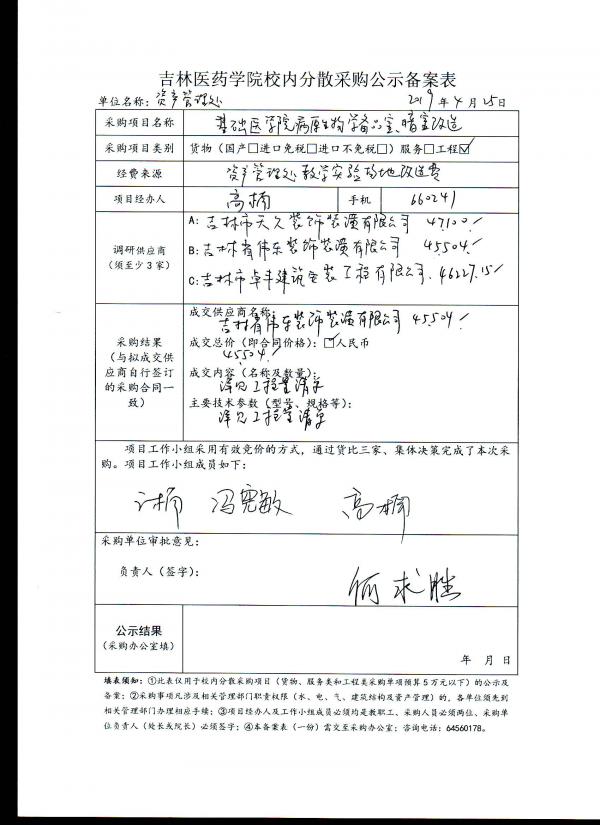 吉林医药学院校内分散采购公示备案表
单位名称：资产管理处 2019年4月25日
采购项目名称 基础医学院病原生物学备品室、暗室改造
采购项目类别 货物（国产□进口免税□进口不免税□）服务□工程☑
经费来源 资产管理处教学实验场地改造费
项目经办人 高楠 手机 660241
调研供应商
（须至少3家）
A：吉林市天久装饰装潢有限公司 47100.
B：吉林省伟东装饰装潢有限公司 45504.
C：吉林市卓丰建筑安装工程有限公司 46227.15
采购结果
（与拟成交供
应商自行签订
的采购合同一
致）
成交供应商名称：
吉林省伟东装饰装潢有限公司 45504.
成交总价（即合同价格）：☑人民币
45504.
成交内容（名称及数量）：
详见工程量清单
主要技术参数（型号、规格等）：
详见工程量清单
项目工作小组采用有效竞价的方式，通过货比三家、集体决策完成了本次采
购。项目工作小组成员如下：
冯宪敏 高楠
采购单位审批意见：
负责人（签字）：
何求胜
公示结果
（采购办公室填）
年 月 日
填表须知：①此表仅用于校内分散采购项目（货物、服务类和工程类采购单项预算5万元以下）的公示及
备案；②采购事项凡涉及相关管理部门职责权限（水、电、气、建筑结构及资产管理）的，各单位须先到
相关管理部门办理相应手续；③项目经办人及工作小组成员必须均是教职工、采购人员必须两位、采购单
位负责人（处长或院长）必须签字；④本备案表（一份）需交至采购办公室；咨询电话：64560178。